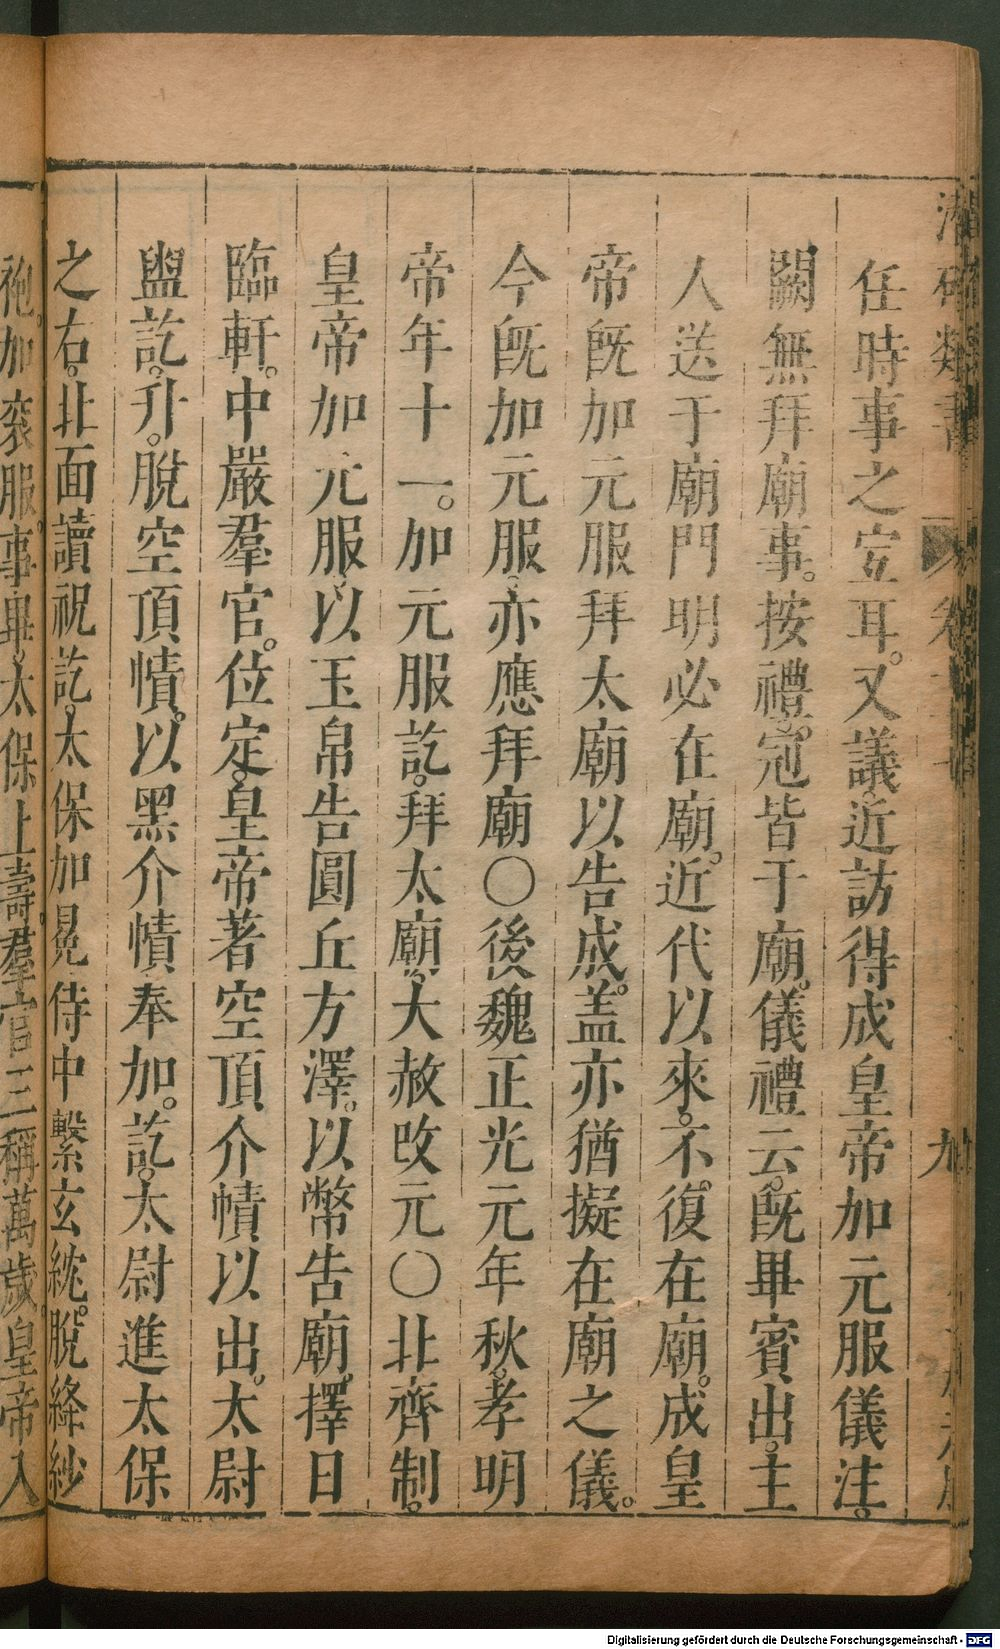 任時事之宜耳。又議近訪得成皇帝加元服儀注。
闕無拜廟事。按禮冠皆于廟。儀禮云。旣畢賓出。主
人送于廟門明必在廟。近代以來。不復在廟。成皇
帝旣加元服拜太廟以告成。盖亦猶擬在廟之儀。
今旣加元服。亦應拜廟〇後魏正光元年秋。孝明
帝年十一。加元服訖。拜太廟。大赦改元〇北齊制。
皇帝加元服。以玉帛告圓丘方澤。以幣告廟。擇日
臨軒。中嚴羣官。位定。皇帝著空頂介幘以出。太尉
盥訖。升。脫空頂幘。以黑介幘奉加。訖。太尉進太保
之右。北面讀祝訖。太保加冕侍中繫玄紞。脫絳紗
袍。加衮服。事畢。太保上壽。羣官三稱萬歲。皇帝入
Digitalisierung gefördert durch die Deutsche Forschungsgemeinschaft - DFG